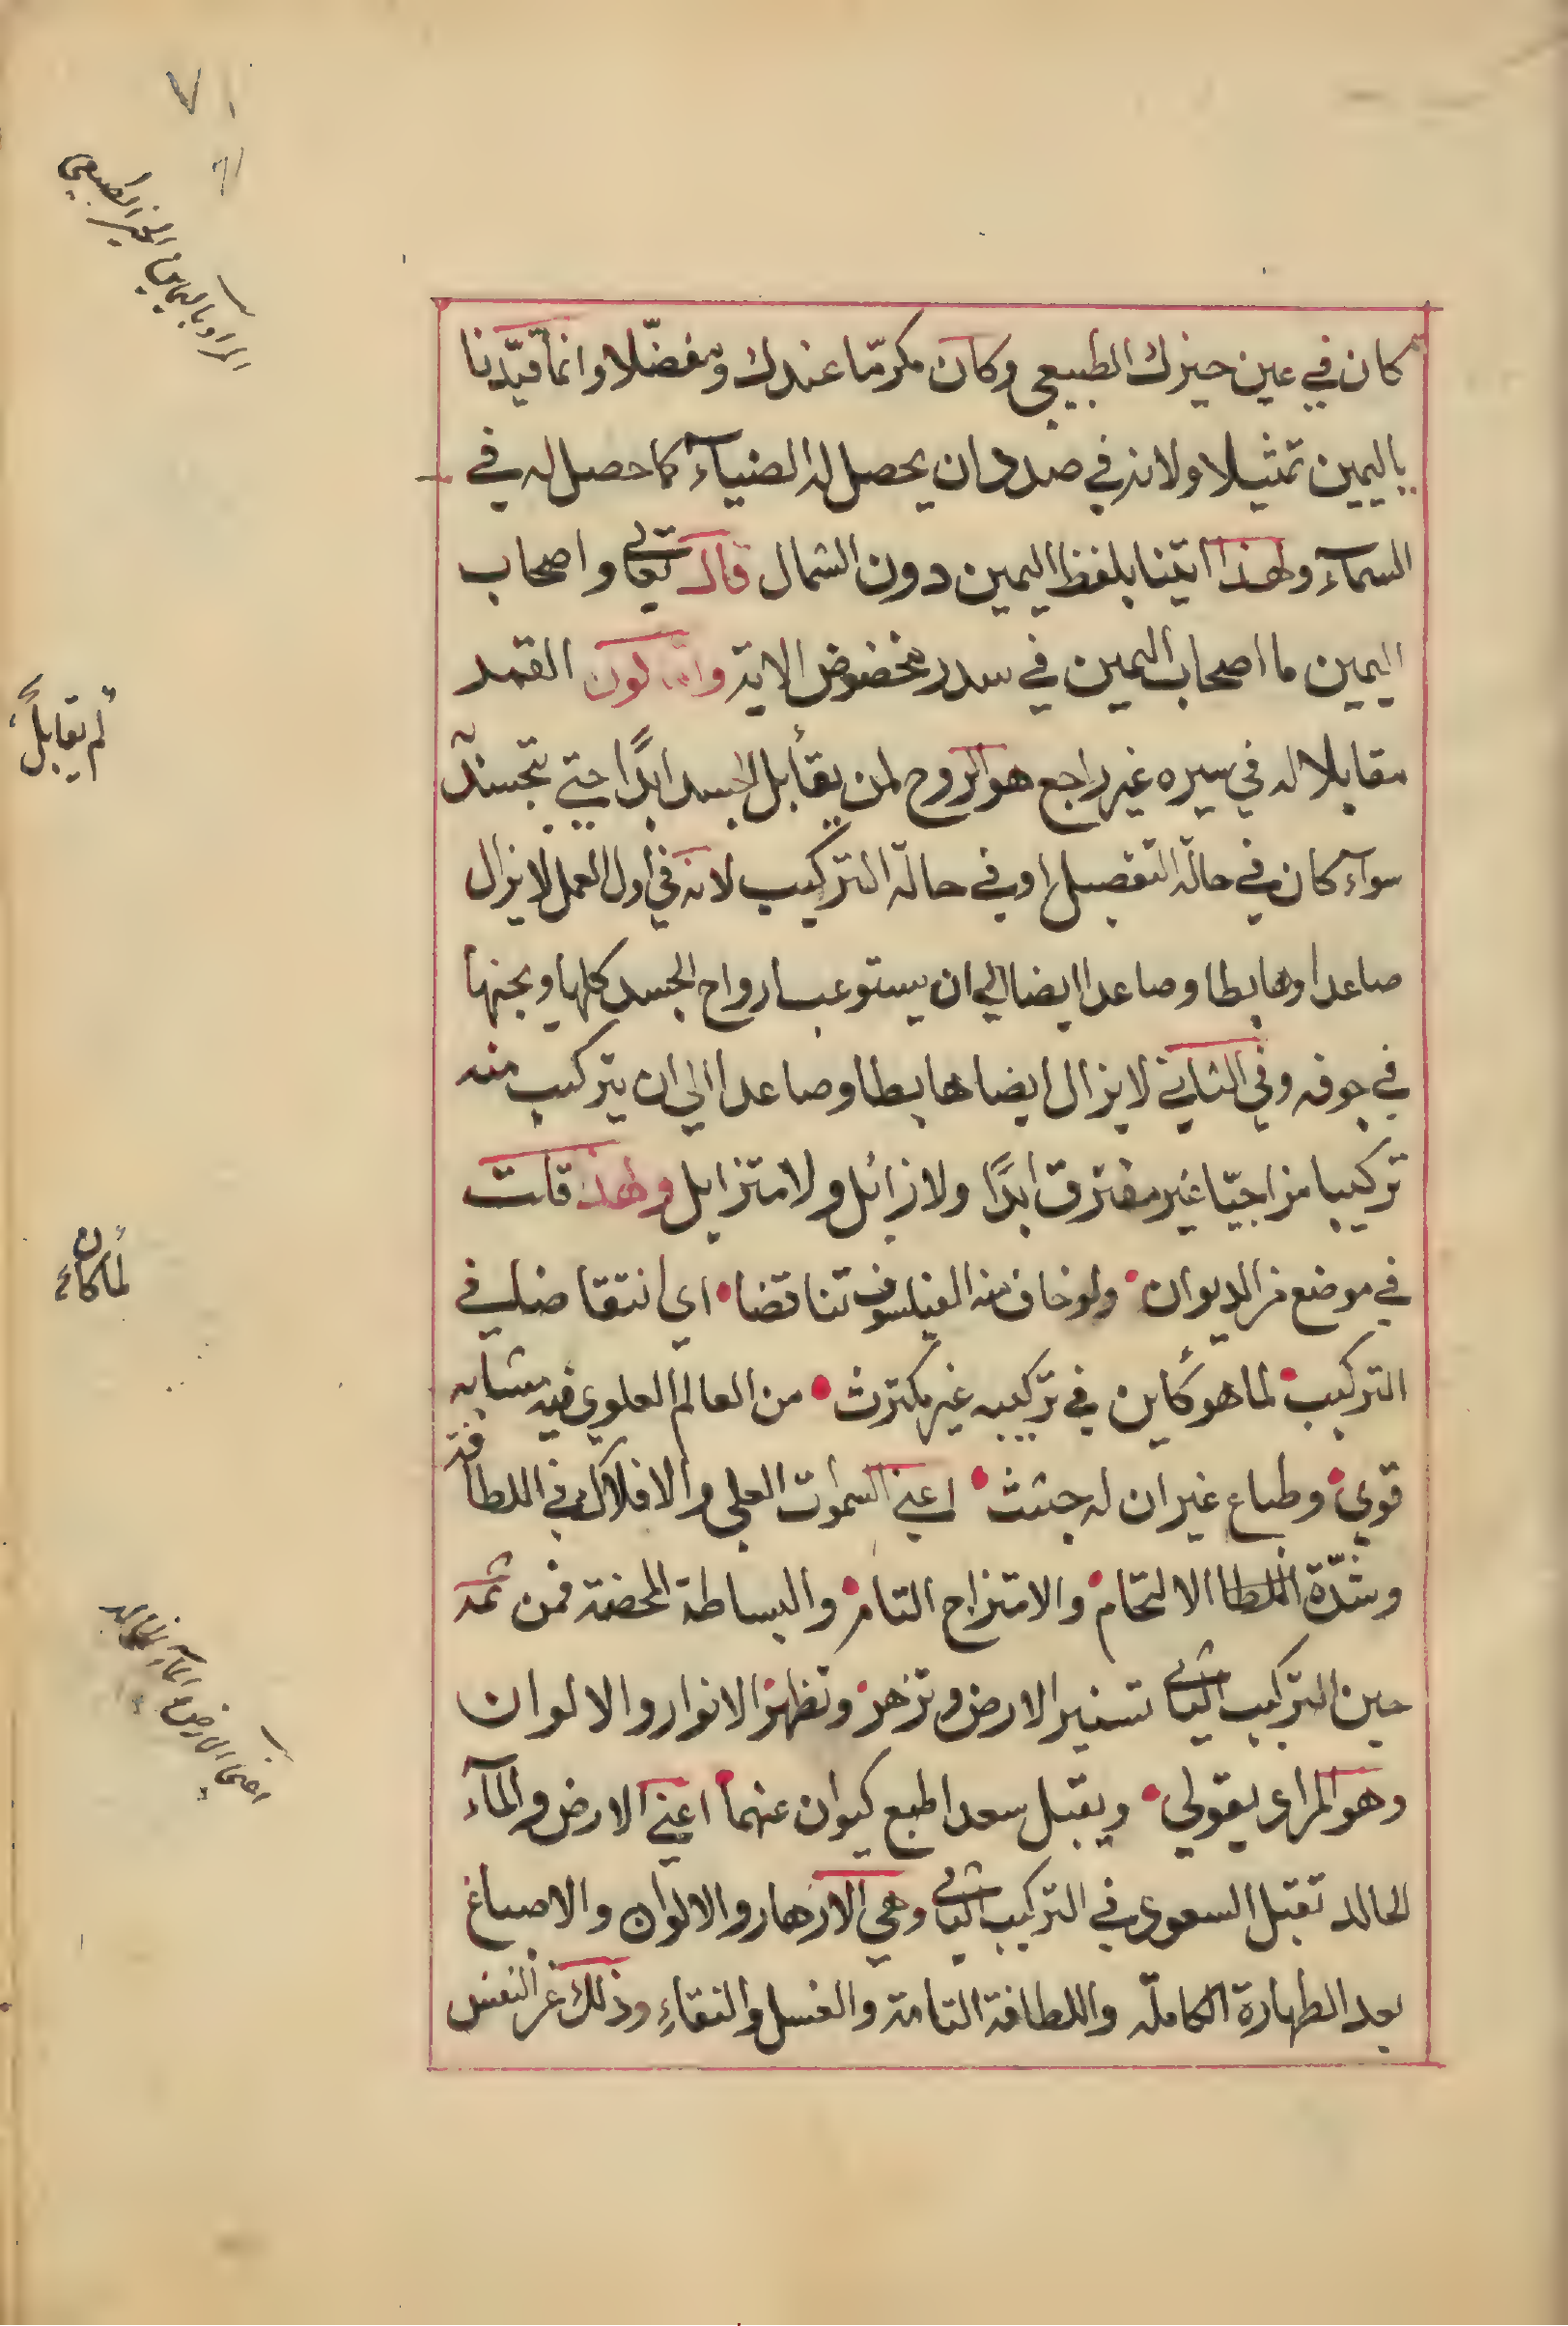 ٧١
٦١
المراد باليمين الحيز الطبيعي
كان في عين حيزك الطبيعي وكان مكرمّا عندك ومفضّلا وانما قيّدنا
باليمين تمثيلا ولانه في صدد ان يحصل له الضيآء كما حصل له في
السمآء ولهذا اتينا بلفظ اليمين دون الشمال قال تعالى واصحاب
اليمين ما اصحاب اليمين في سدر مخضوض الاية واما كون القمر
مقابلا له في سيره غير راجع هو الروح لمن يقابل الجسد ابدًا حتى يتجسد
لم يقابل
سوآء كان في حالة التفصيل او في حالة التركيب لانه في اول العمل لا يزال
صاعدا وهابطا وصاعدا ايضا الى ان يستوعب ارواح الجسد كلها ويجنها
في جوفه وفي الثاني لا يزال ايضا هابطا وصاعدا الى ان يتركب منه
تركيبا مزاجيّا غير مفترق ابدًا ولا زائل ولا متزايل ولهذا قلت
في موضع من الديوان ولو خاف منه الفيلسوف تناقضا اي انتقاضا في
لما كان
التركيب لما هو كاين في تركيبه غير مكترث من العالم العلوي فيه مشابه
قوي وطباع غير ان له جثث اعني السموات العلى والافلاك في اللطافة
وشدّة اللطا الالتحام والامتزاج التام والبساطة المحضة فمن ثمه
حين التركيب الثاني تستنير الارض وتزهر وتظهر الانوار والالوان
وهو المراد بقولي ويقبل سعد الطبع كيوان عنهما اعني الارض والمآء
الخالد تقبل السعود في التركيب الثاني وهي الازهار والالوان والاصباغ
بعد الطهارة الكاملة واللطافة التامة والغسل والنقاء وذلك عن النفس